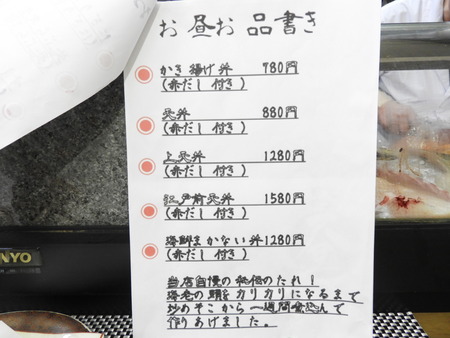 お昼お品書き
かき揚げ丼 780円
(赤だし付き)
天丼 880円
(赤だし付き)
上天丼 1280円
(赤だし付き)
江戸前天丼 1580円
(赤だし付き)
海鮮まかない丼 1280円
(赤だし付き)
当店自慢の秘伝のたれ!
海老の頭をカリカリになるまで
炒めそこから一週間煮込んで
作りあげました。
NYO